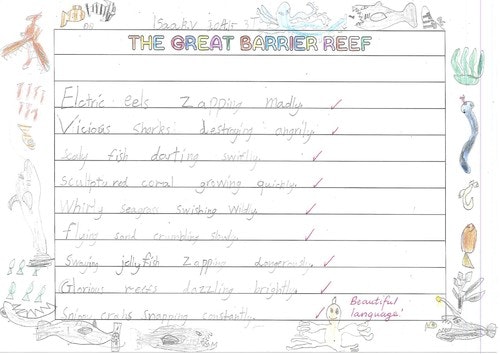 THE GREAT BARRIER REEF
Elctric eels zapping madly.
Vicious sharks destroying angrily.
Scaly fish darting swiftly.
Sculptured coral growing quickly.
Whirly seagrass swishing wildly.
Flying sand crumbling slowly.
Swaying jellyfish zapping dangerously.
Glorious reefs dazzling brightly.
Snippy crabs snapping constantly.
Beautiful
language!